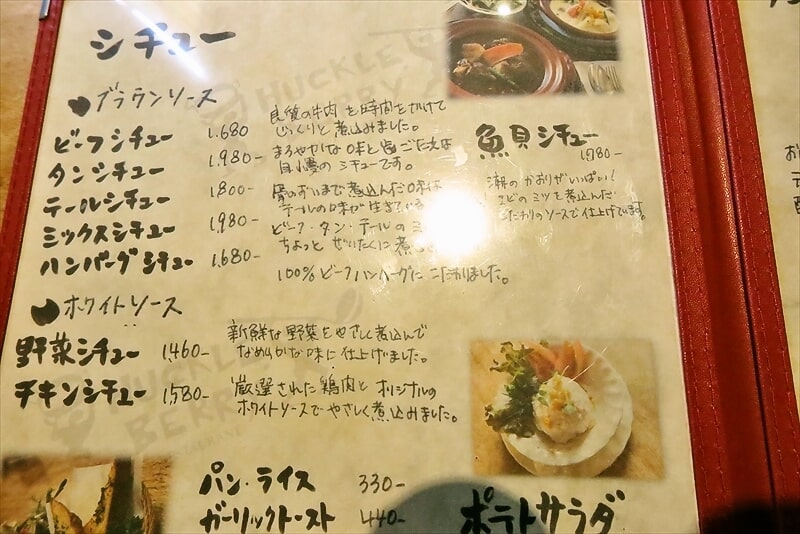 シチュー
ブラウンソース
ビーフシチュー 1.680 良質の牛肉を時間をかけて
じっくりと煮込みました。
タンシチュー 1.980- まろやかな味と歯ごたえは
自慢のシチューです。
テールシチュー 1.800- 骨のずいまで煮込んだ味は
テールの味が生きている
ミックスシチュー 1.980- ビーフ・タン・テールのミ
ちょっとぜいたくに煮
ハンバーグシチュー 1.680- 100%ビーフハンバーグにこだわりました。
ホワイトソース
野菜シチュー 1.460- 新鮮な野菜をやさしく煮込んで
なめらかな味に仕上げました。
チキンシチュー 1.580- 厳選された鶏肉とオリジナルの
ホワイトソースでやさしく煮込みました。
パン・ライス 330-
ガーリックトースト 440-
魚貝シチュー
1.780-
潮のかおりがいっぱい!
エビのミソを煮込んだ
こだわりのソースで仕上げています。
ポテトサラダ
HUCKLE
BERRY
HUCKLE
BERRY